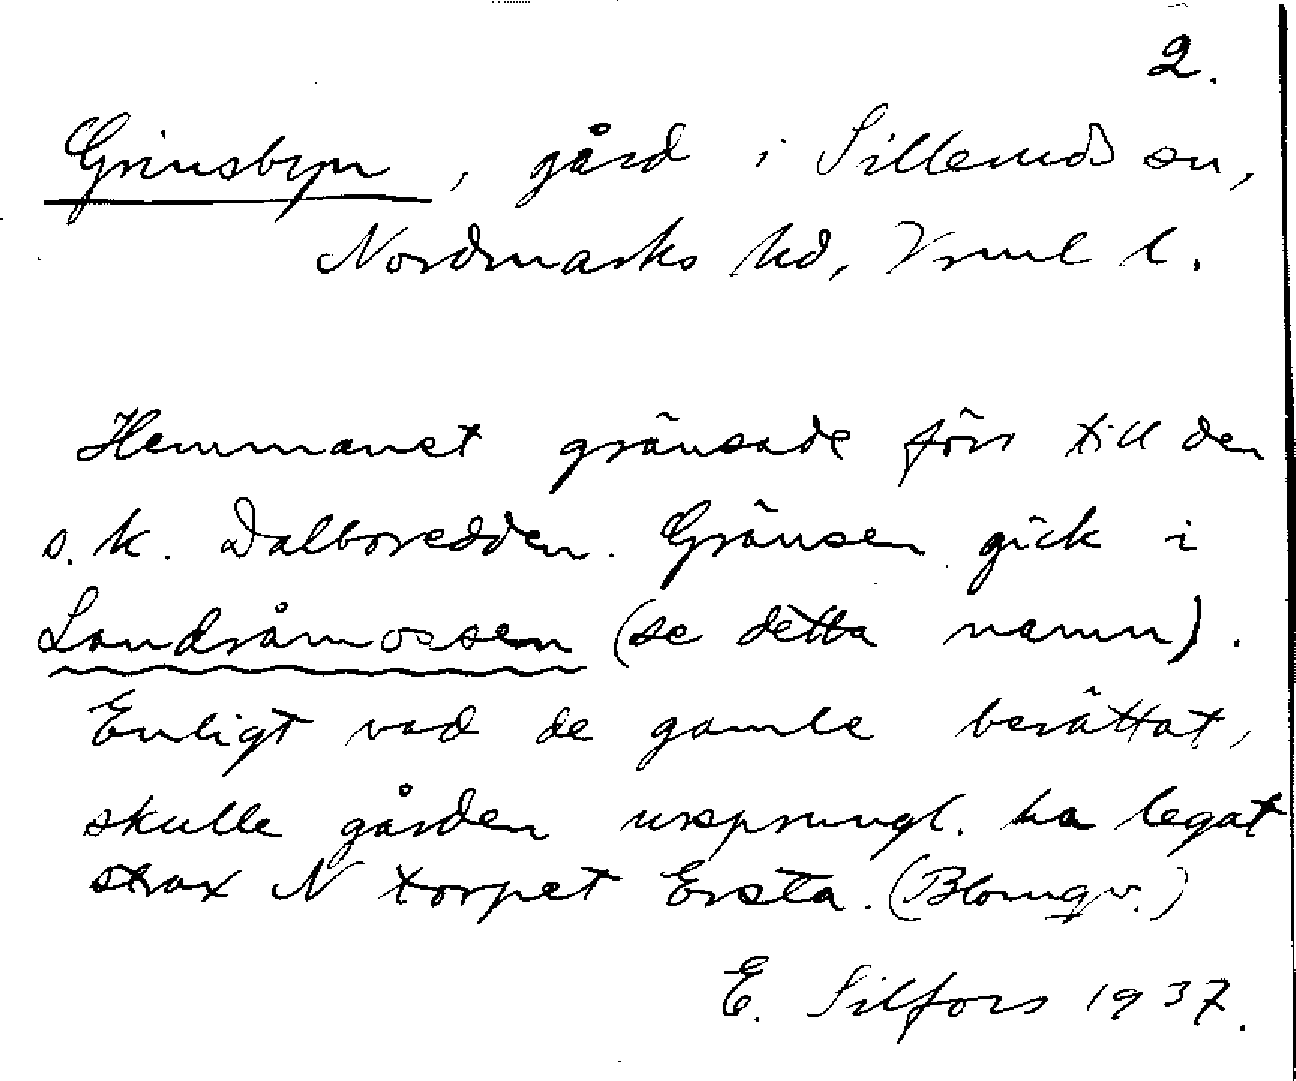 2.
Grinsbyn, gård i Silleruds sn,
Nordmarks hd, Vrml l.
Hemmanet gränsade förr till den
s.k. Dalboredden. Gränsen gick i
Landråmossen (se detta namn).
Enligt vad de gamla berättat,
skulle gården ursprungl. ha legat
strax N torpet Ersta. (Blomqv.)
E. Silfors 1937.